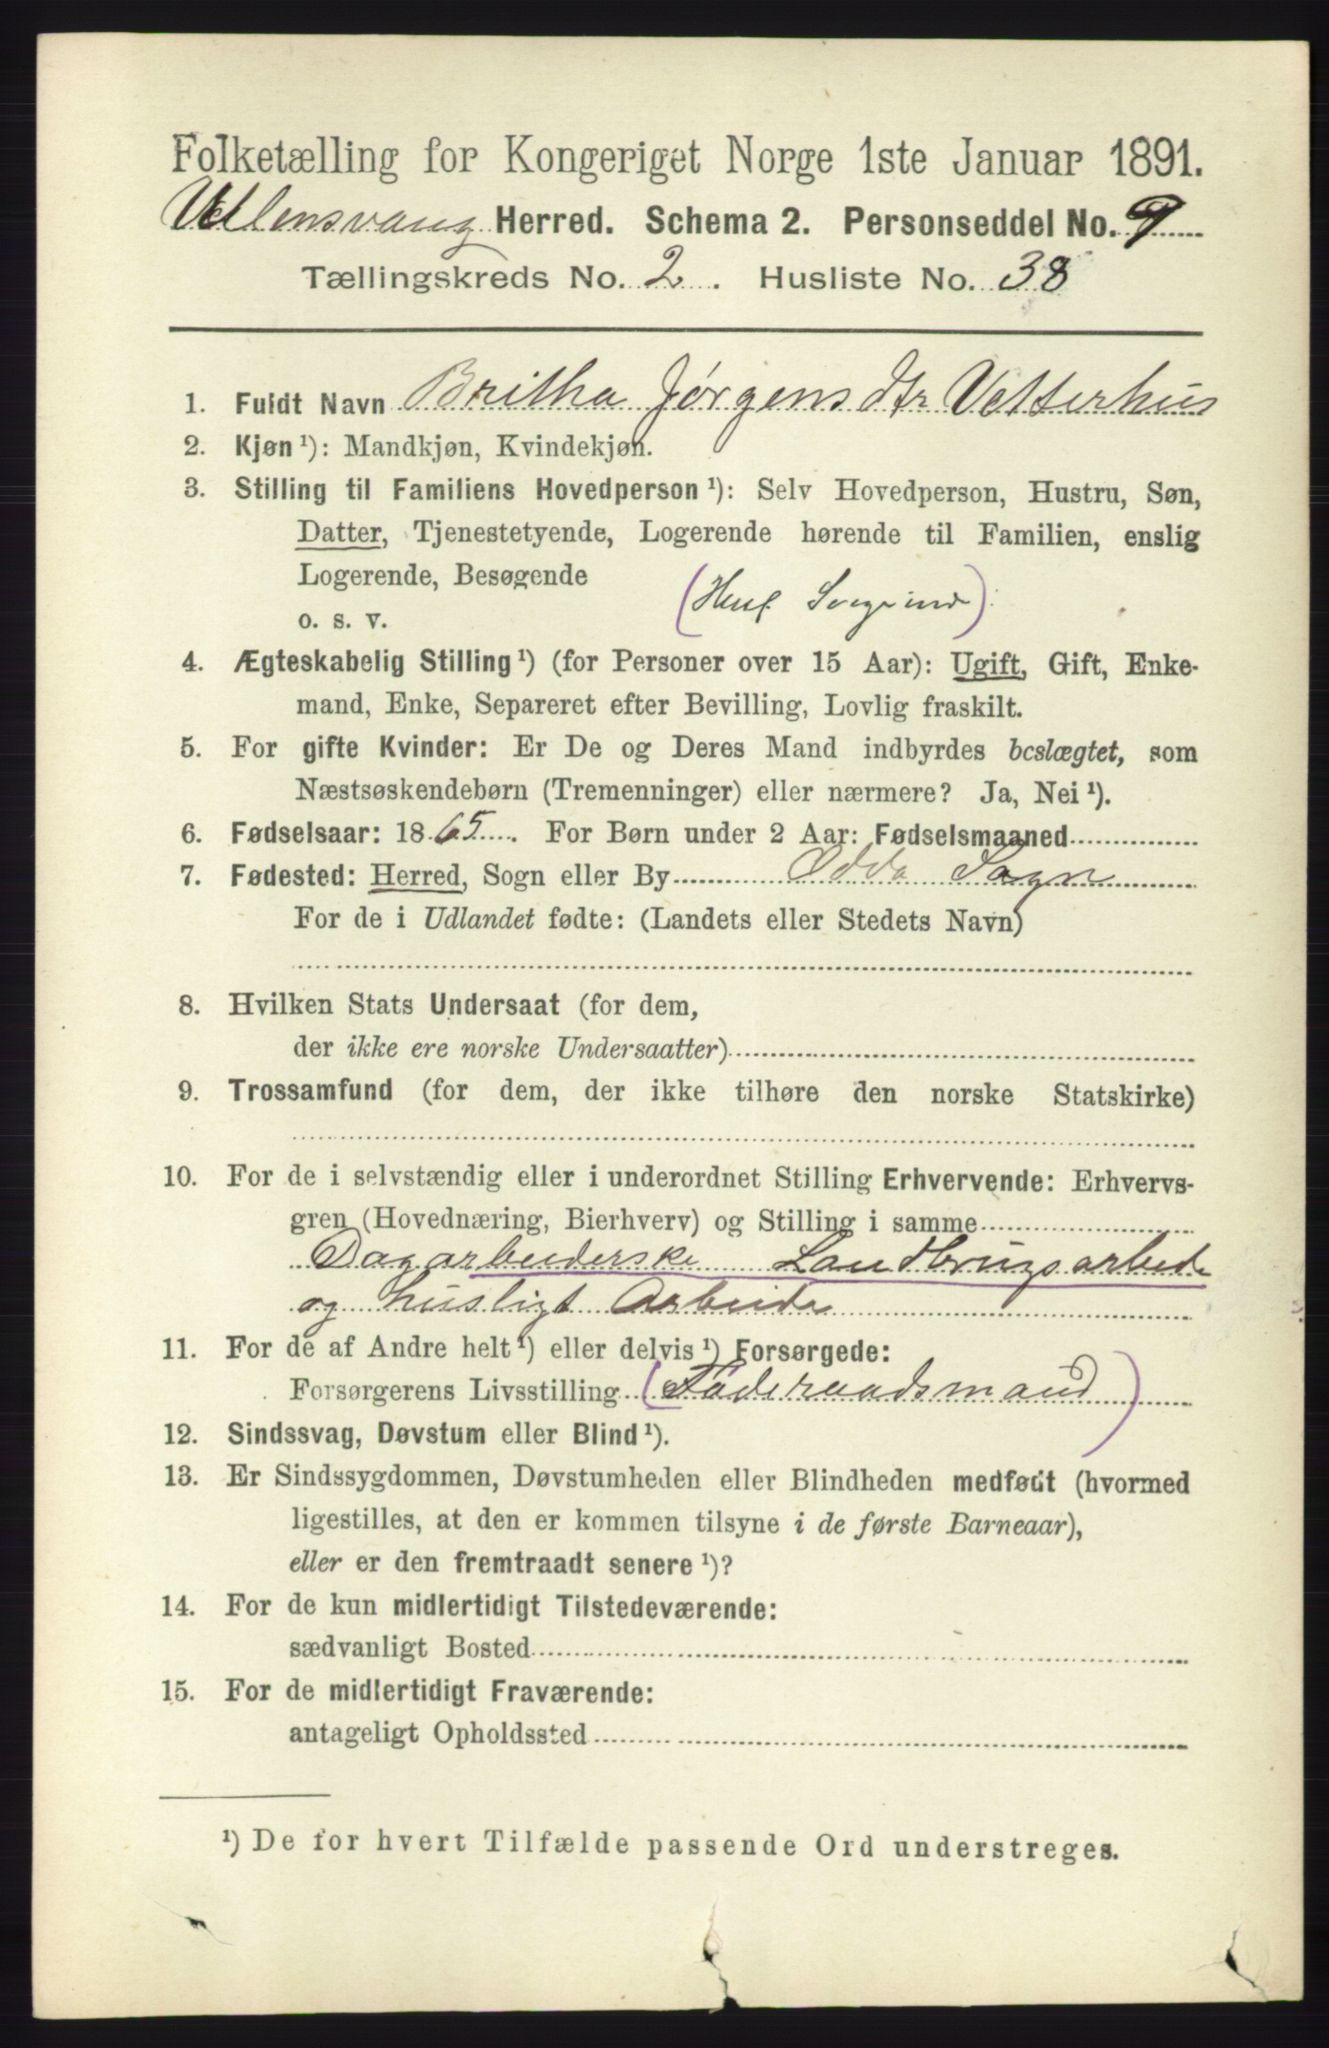 Folketælling for Kongeriget Norge 1ste Januar 1891.
Ullensvang Herred. Schema 2. Personseddel No. 9
Tællingskreds No. 2. Husliste No. 38
1. Fuldt Navn Britha Jørgensdtr Vetterhus
2. Kjøn ¹): Mandkjøn, Kvindekjøn.
3. Stilling til Familiens Hovedperson ¹): Selv Hovedperson, Hustru, Søn,
Datter, Tjenestetyende, Logerende hørende til Familien, enslig
Logerende, Besøgende
o. s. v.
4. Ægteskabelig Stilling ¹) (for Personer over 15 Aar): Ugift, Gift, Enke-
mand, Enke, Separeret efter Bevilling, Lovlig fraskilt.
5. For gifte Kvinder: Er De og Deres Mand indbyrdes beslægtet, som
Næstsøskendebørn (Tremenninger) eller nærmere? Ja, Nei ¹).
6. Fødselsaar: 1865. For Børn under 2 Aar: Fødselsmaaned
7. Fødested: Herred, Sogn eller By Odda Sogn
For de i Udlandet fødte: (Landets eller Stedets Navn)
8. Hvilken Stats Undersaat (for dem,
der ikke ere norske Undersaatter)
9. Trossamfund (for dem, der ikke tilhøre den norske Statskirke)
10. For de i selvstændig eller i underordnet Stilling Erhvervende: Erhvervs-
gren (Hovednæring, Bierhverv) og Stilling i samme
Dagarbeiderske Landbrugsarbeide
og husligt Arbeide
11. For de af Andre helt ¹) eller delvis ¹) Forsørgede:
Forsørgerens Livsstilling (Føderaadsmand)
12. Sindssvag, Døvstum eller Blind ¹).
13. Er Sindssygdommen, Døvstumheden eller Blindheden medfødt (hvormed
ligestilles, at den er kommen tilsyne i de første Barneaar),
eller er den fremtraadt senere ¹)?
14. For de kun midlertidigt Tilstedeværende:
sædvanligt Bosted
15. For de midlertidigt Fraværende:
antageligt Opholdssted
¹) De for hvert Tilfælde passende Ord understreges.